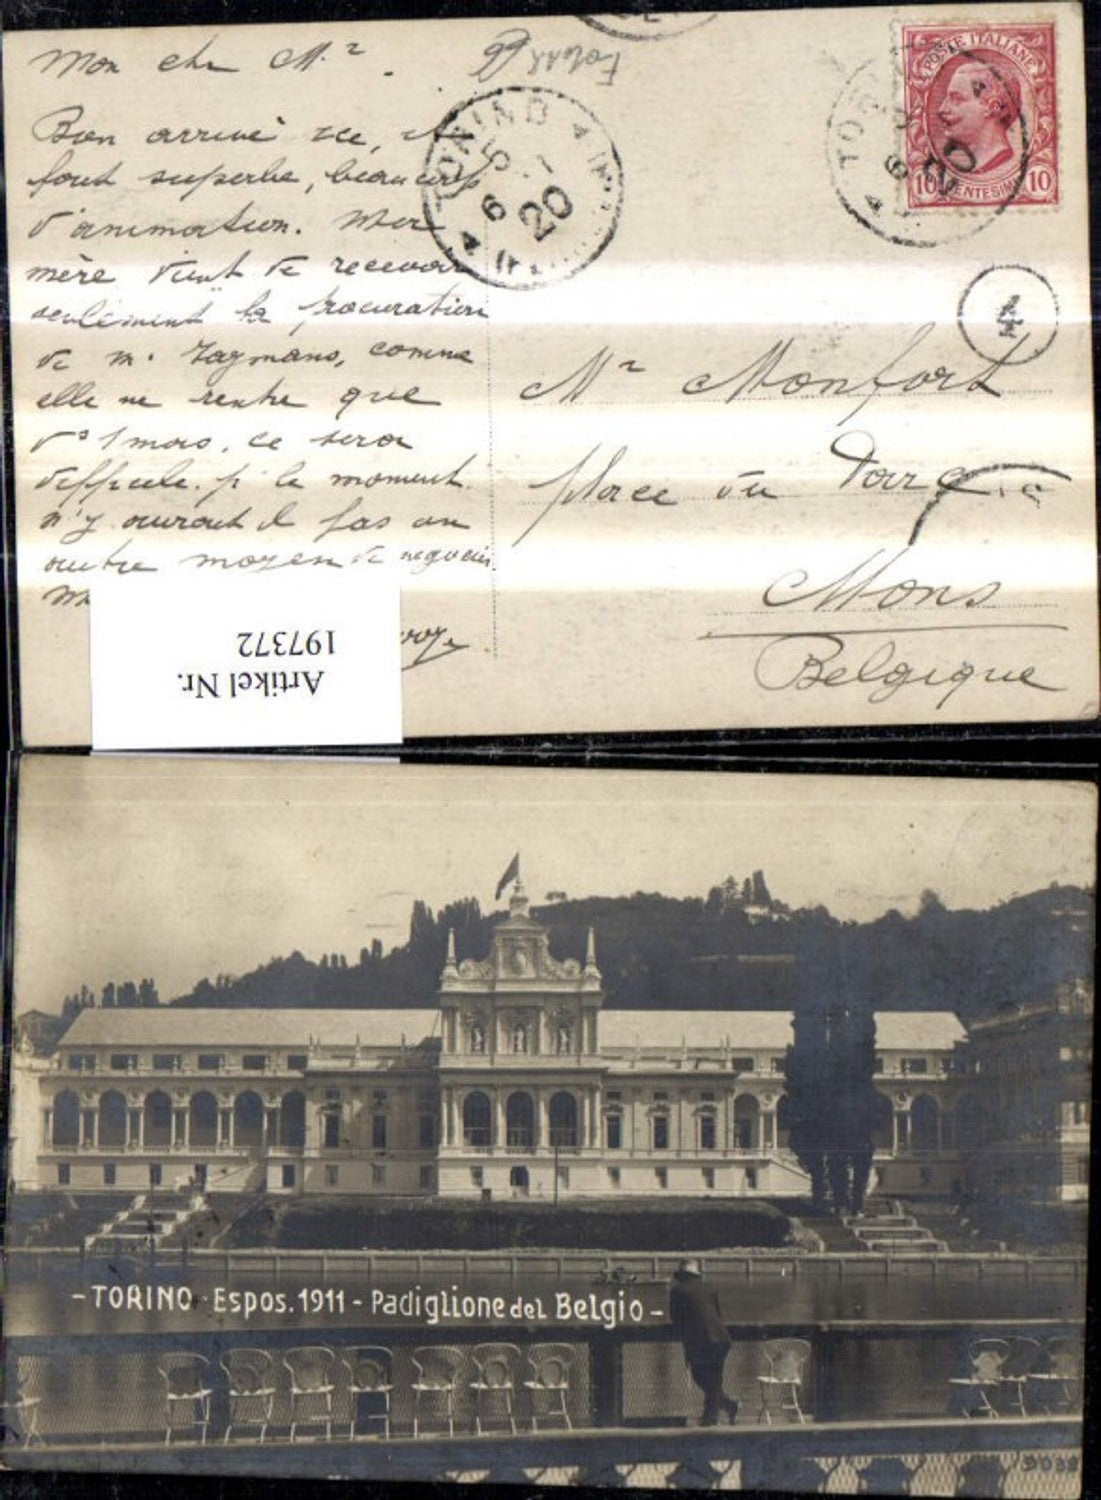 Mon cher Mr.
Bien arrivé ici,
font superbe, beaucoup
d'animation. Mer
mère vient de recevoir
seulement la procuration
de m. Zagmans, comme
elle ne rentre que
ds 1 mois, ce sera
difficile. pr le moment
n'y aurait il pas un
autre moyen de négocier.
TORINO
5 - 6
20
POSTE ITALIANE
10 CENTESIMI 10
TORINO
4
Mr Monfort
Place du Parc
Mons
Belgique
Artikel Nr.
197372
- TORINO - Espos. 1911 - Padiglione del Belgio -